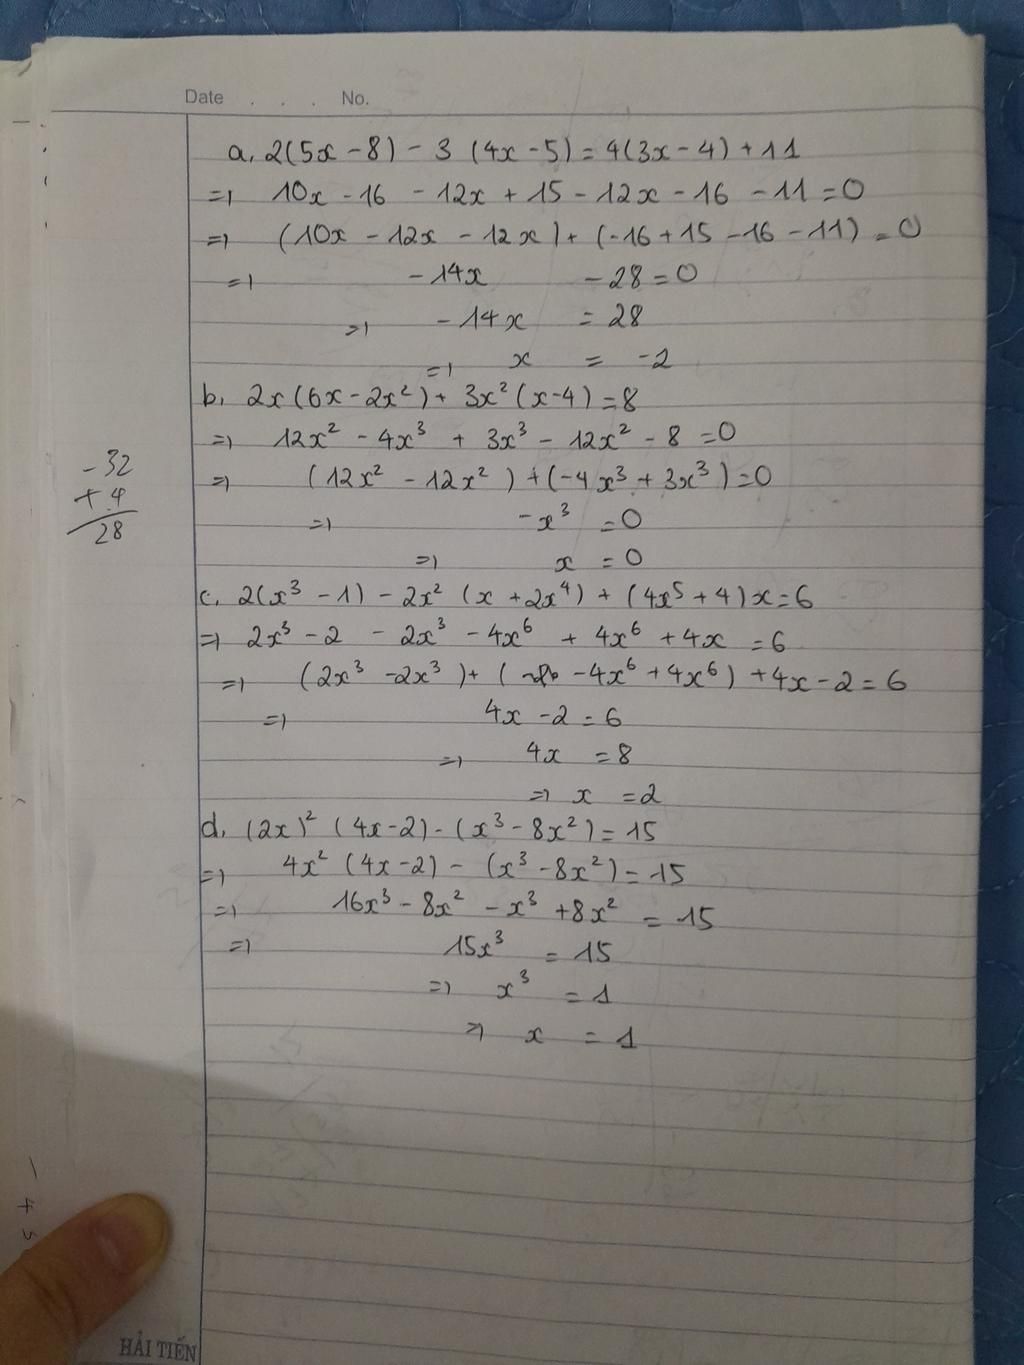 Date . . . No.
a, 2(5x - 8) - 3 (4x - 5) = 4(3x - 4) + 11
=> 10x - 16 - 12x + 15 - 12x - 16 - 11 = 0
=> (10x - 12x - 12x) + (-16 + 15 - 16 - 11) = 0
=> - 14x - 28 = 0
=> - 14x = 28
=> x = -2
b, 2x(6x - 2x²) + 3x² (x - 4) = 8
=> 12x² - 4x³ + 3x³ - 12x² - 8 = 0
=> (12x² - 12x²) + (-4x³ + 3x³) = 0
=> -x³ = 0
=> x = 0
- 32
+ 4
28
c, 2(x³ - 1) - 2x² (x + 2x⁴) + (4x⁵ + 4)x = 6
=> 2x³ - 2 - 2x³ - 4x⁶ + 4x⁶ + 4x = 6
=> (2x³ - 2x³) + ( - 4x⁶ + 4x⁶) + 4x - 2 = 6
=> 4x - 2 = 6
=> 4x = 8
=> x = 2
d, (2x)² (4x - 2) - (x³ - 8x²) = 15
=> 4x² (4x - 2) - (x³ - 8x²) = 15
=> 16x³ - 8x² - x³ + 8x² = 15
=> 15x³ = 15
=> x³ = 1
=> x = 1
HẢI TIẾN